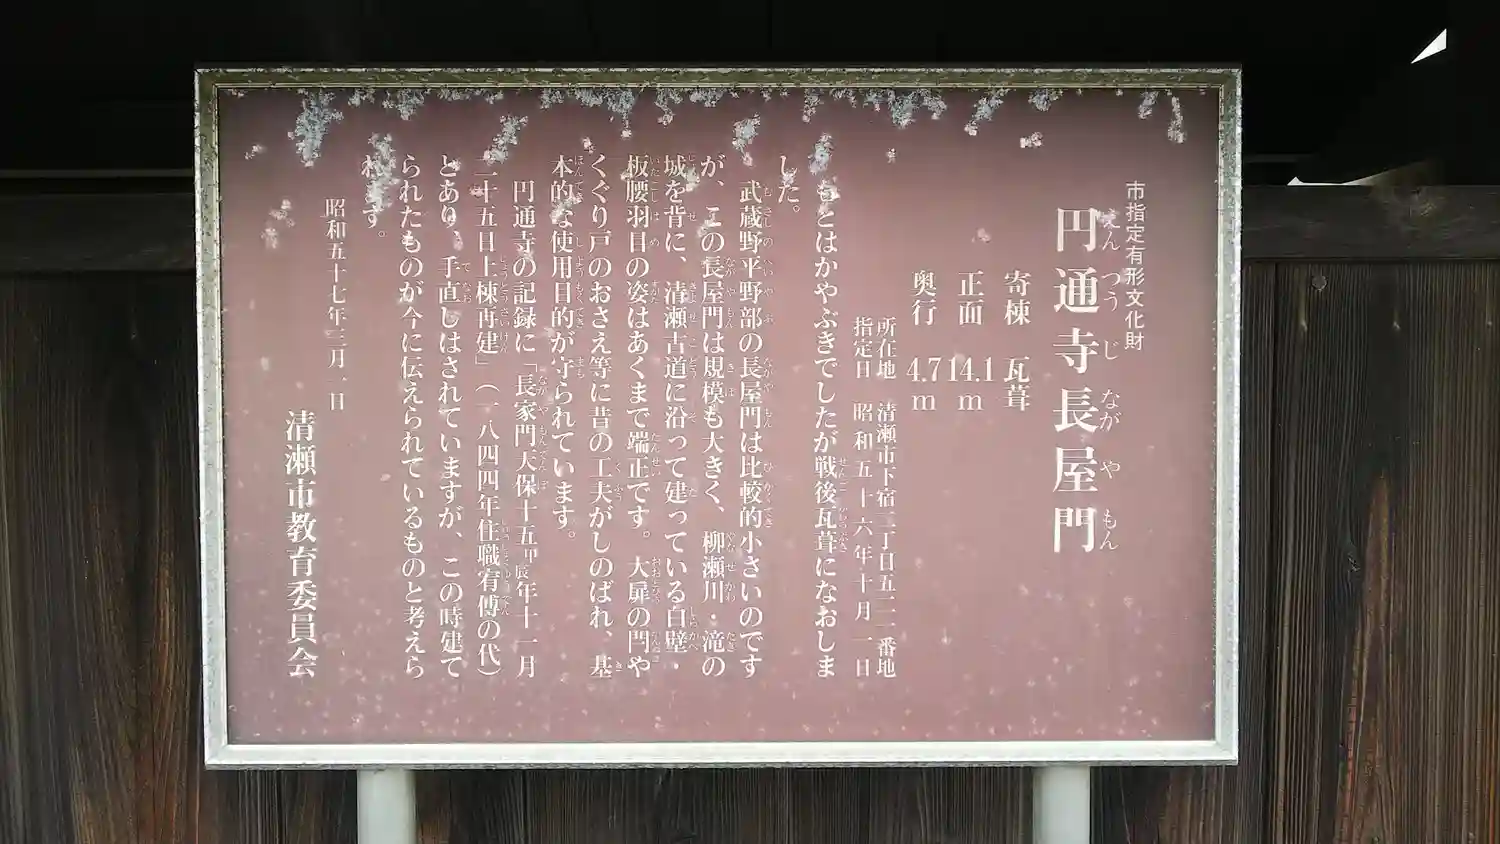 市指定有形文化財
円通寺長屋門
えんつうじながやもん
寄棟 瓦葺
正面 14.1m
奥行 4.7m
所在地 清瀬市下宿二丁目五二一番地
指定日 昭和五十六年十月一日
もとはかやぶきでしたが戦後瓦葺になおしま
した。
武蔵野平野部の長屋門は比較的小さいのです
が、この長屋門は規模も大きく、柳瀬川・滝の
城を背に、清瀬古道に沿って建っている白壁・
板腰羽目の姿はあくまで端正です。大扉の閂や
くぐり戸のおさえ等に昔の工夫がしのばれ、基
本的な使用目的が守られています。
円通寺の記録に「長家門天保十五甲辰年十一月
二十五日上棟再建」(一八四四年住職宥傅の代)
とあり、手直しはされていますが、この時建て
られたものが今に伝えられているものと考えら
れます。
昭和五十七年三月一日
清瀬市教育委員会